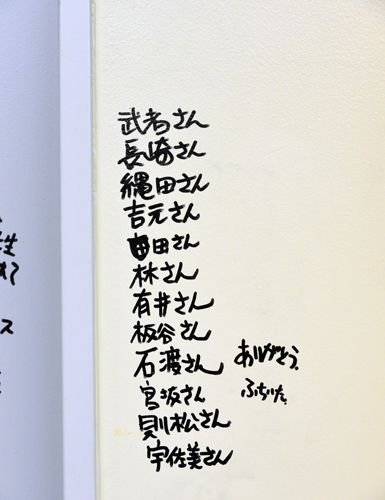 武者さん
長崎さん
縄田さん
吉元さん
田さん
林さん
有井さん
板谷さん
石渡さん
宮坂さん
則松さん
宇佐美さん
ありがとう。
ふちいた。
性
めて
ス